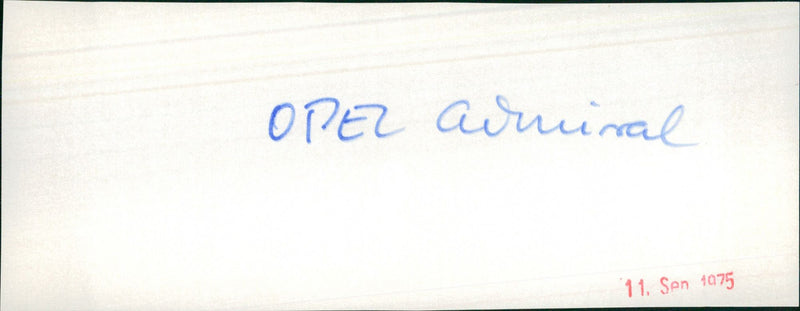 OPEL Admiral
11. Sep 1975